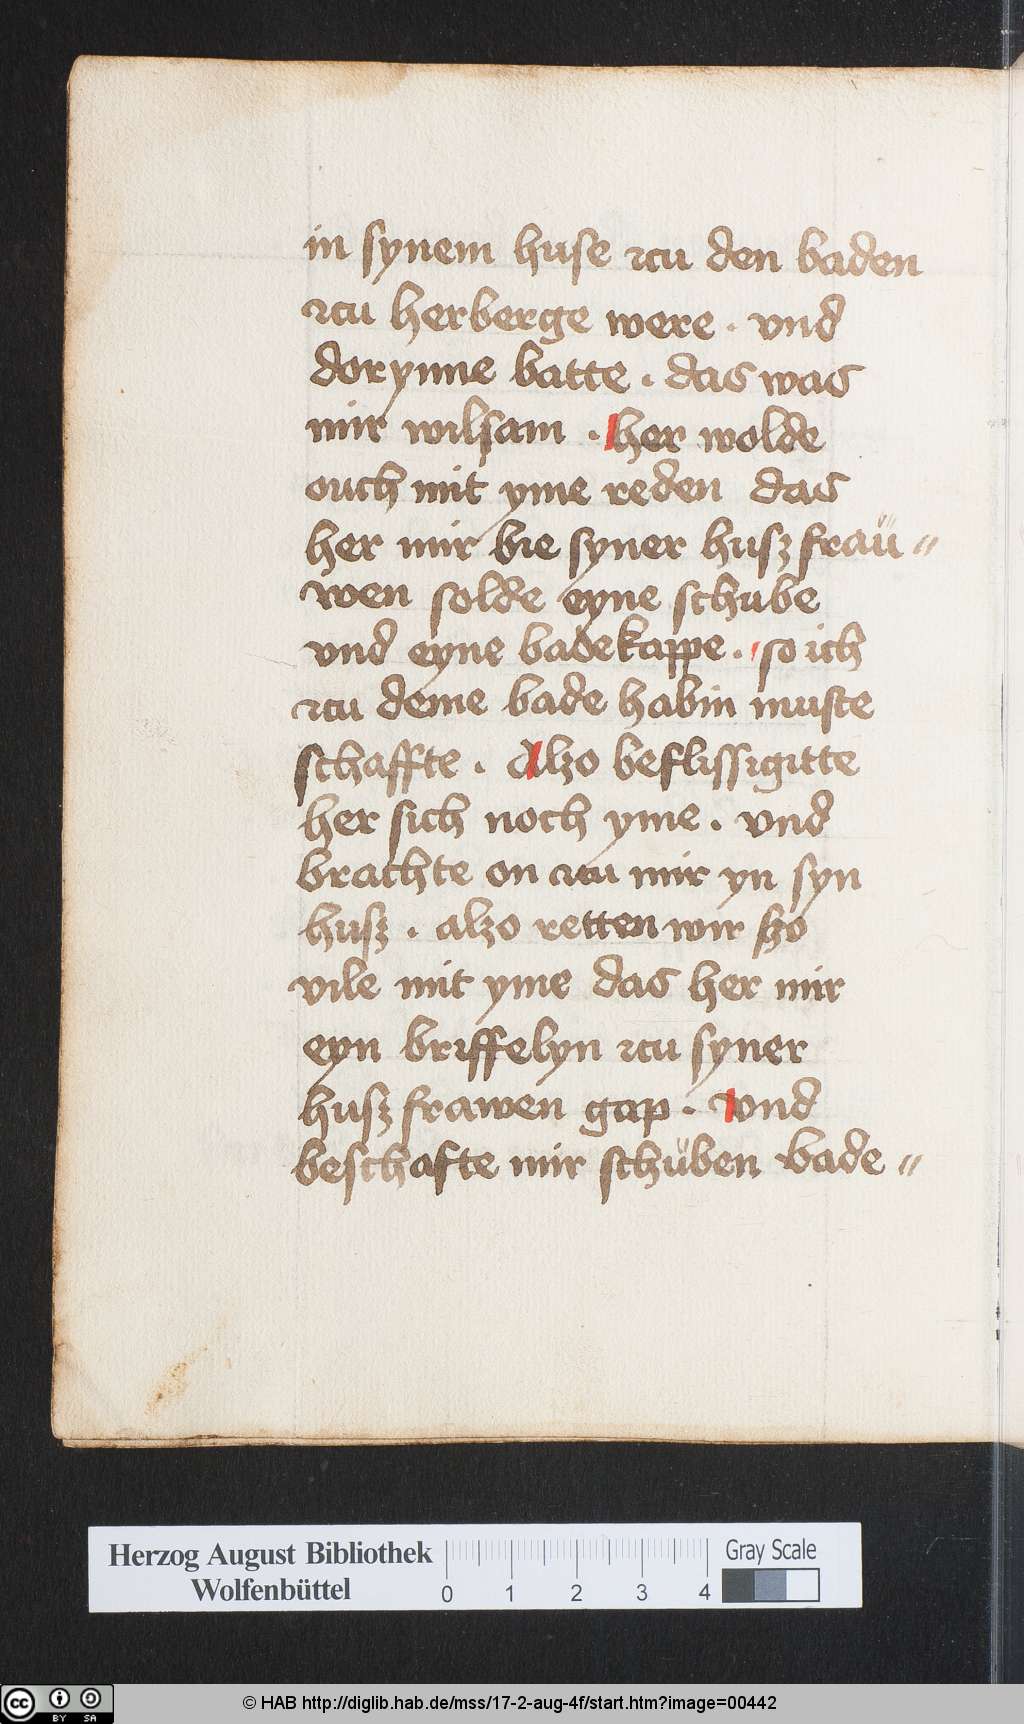 in synem huse zcu den baden
zcu herberge were . vnd
dorynne batte . das was
mir wilsam . her wolde
ouch mit yme reden das
her mir bie syner husz fraü〃
wen solde eyne schube
vnd eyne badekappe . so ich
zcu deme bade habin muste
schaffte . Alzo beflissigitte
her sich noch yme . vnd
brachte on zcu mir yn syn
husz . alzo retten wir szo
vile mit yme das her mir
eyn briffelyn zcu syner
husz frawen gap . vnd
beschafte mir schüben bade〃
Herzog August Bibliothek
Wolfenbüttel
0 1 2 3 4
Gray Scale
cc BY SA
© HAB http://diglib.hab.de/mss/17-2-aug-4f/start.htm?image=00442